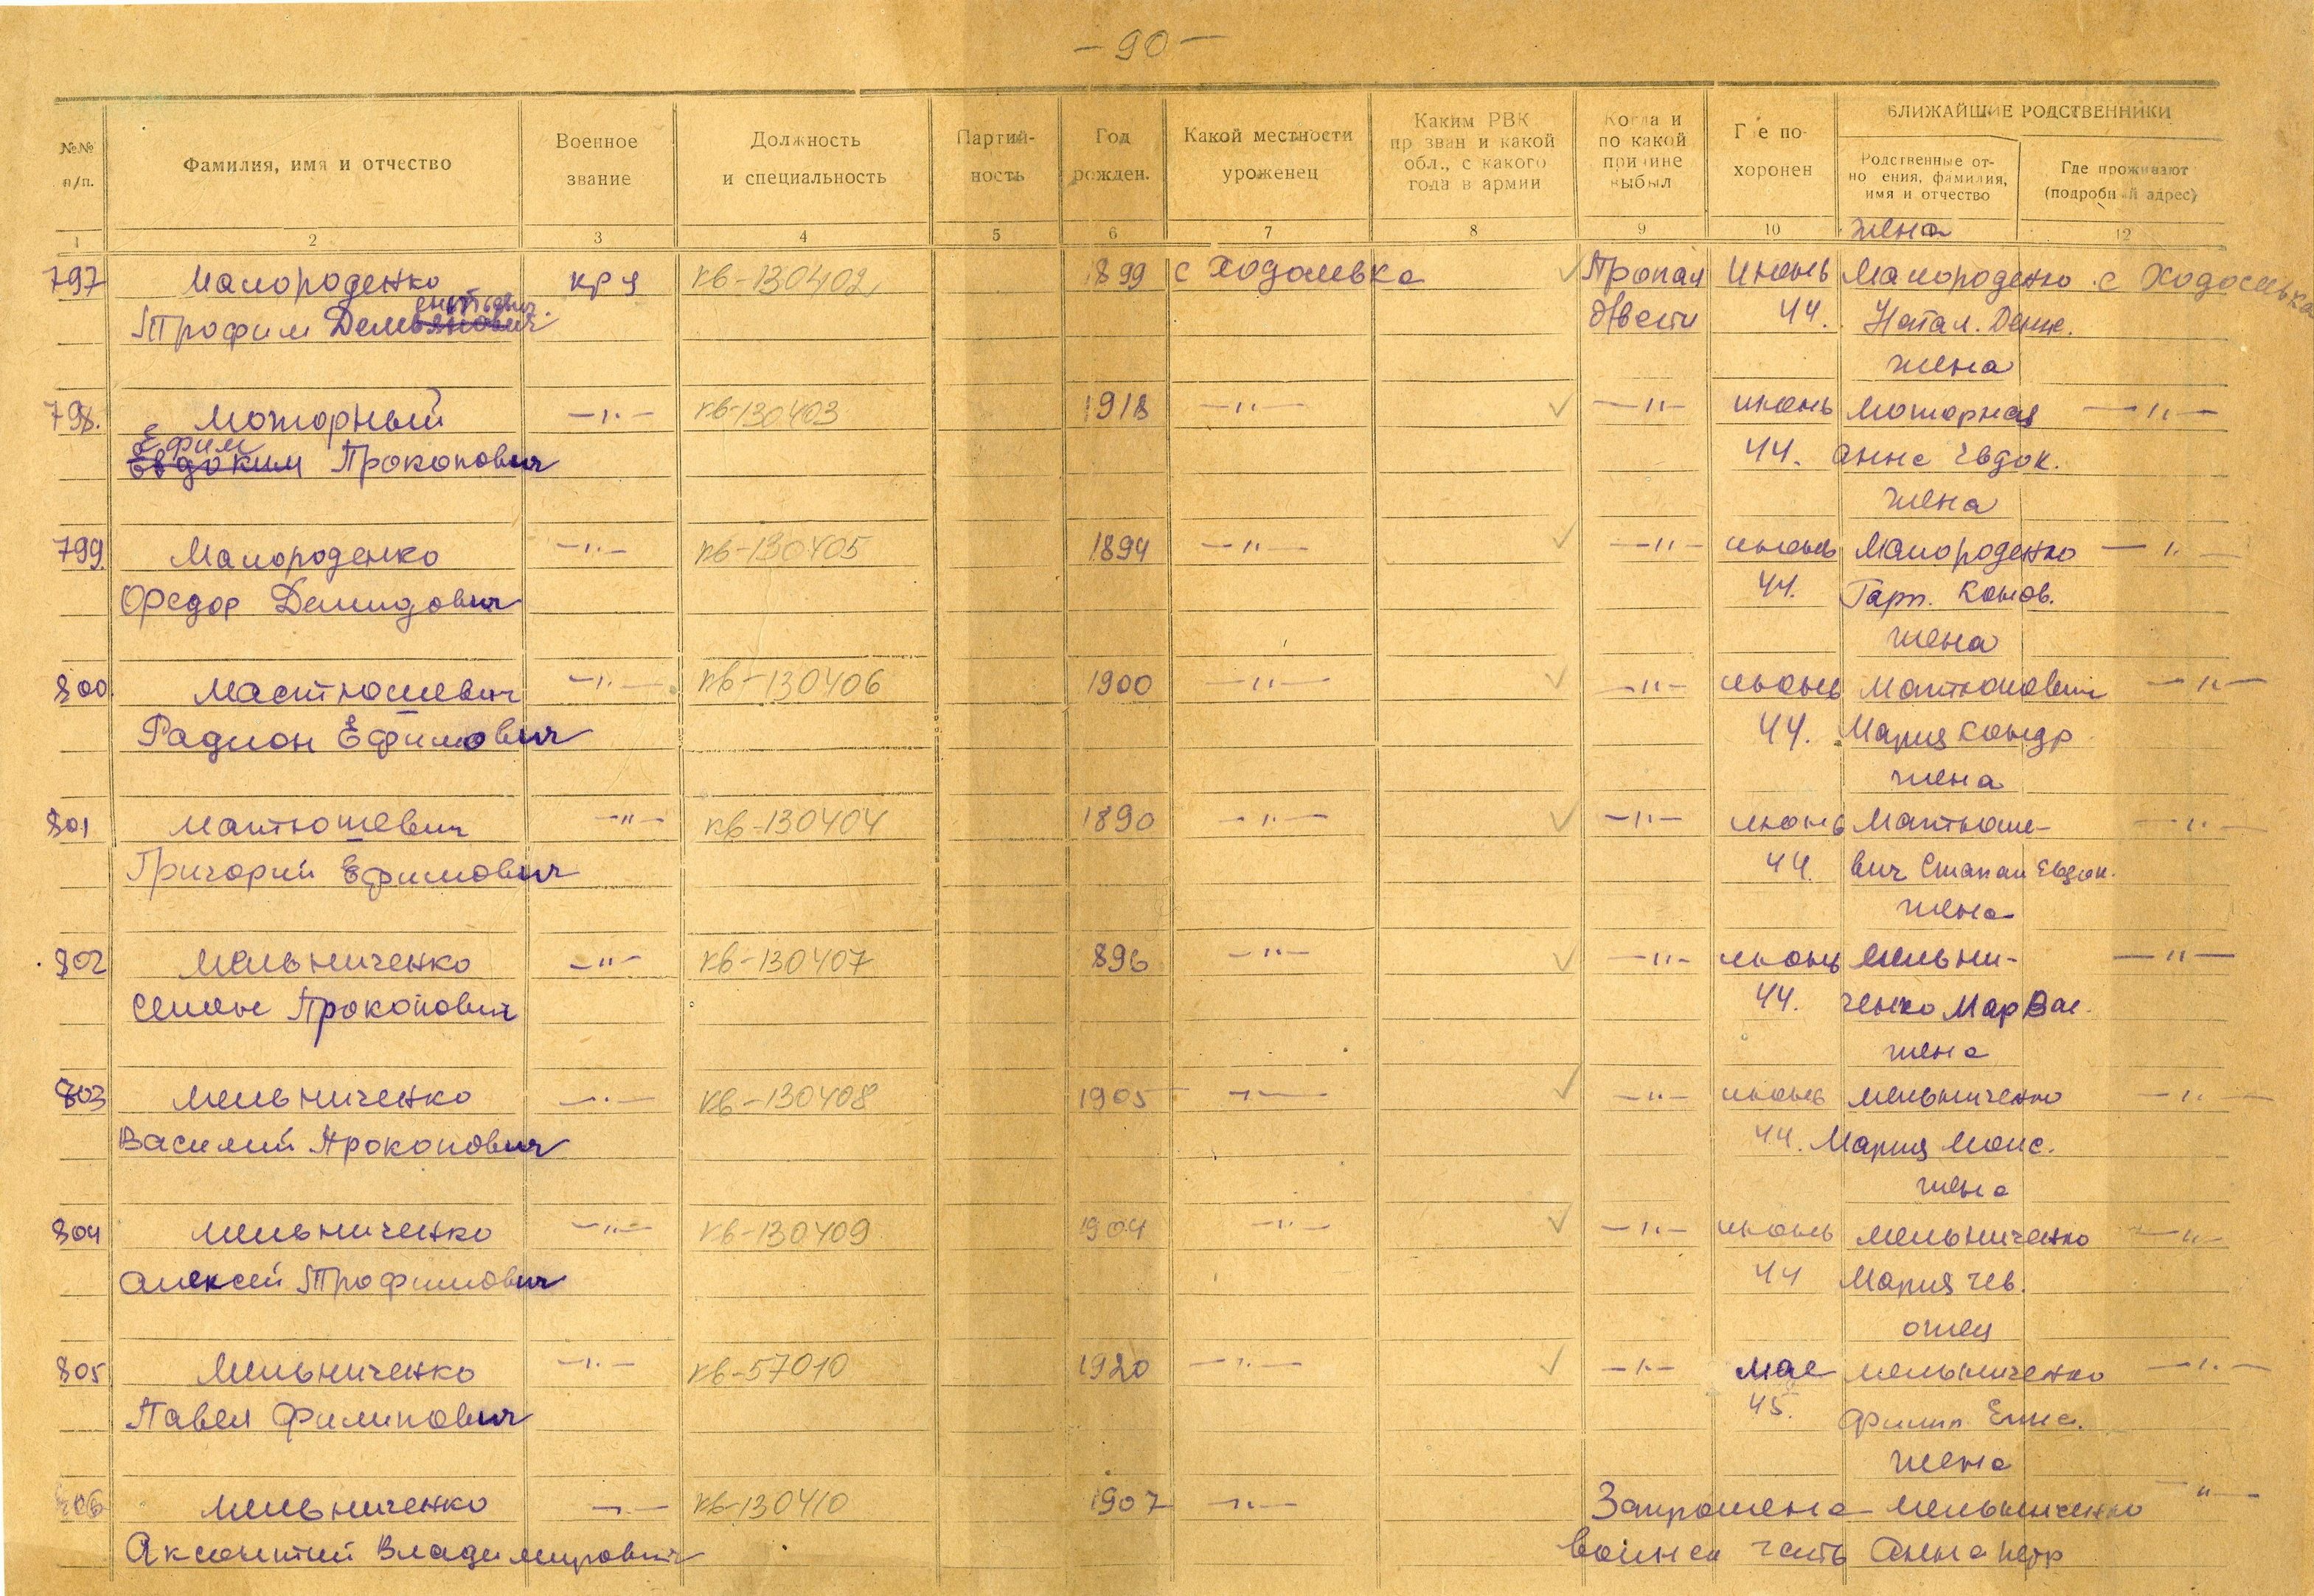 - 90 -
№№ п/п. Фамилия, имя и отчество Военное звание Должность и специальность Партий- ность Год рожден. Какой местности уроженец Каким РВК призван и какой обл., с какого года в армии Когда и по какой причине выбыл Где по- хоронен БЛИЖАЙШИЕ РОДСТВЕННИКИ
Родственные от- но ения, фамилия, имя и отчество Где проживают (подробный адрес)
1 2 3 4 5 6 7 8 9 10 12
жена
797 Малороденко кр-ц кв-130402 1899 с Ходосевка Пропал июнь Малороденко с Ходосевка
Трофим б/вести 44. Натал. Дем.
жена
798. Моторный -"- кв-130403 1918 -"- -"- июнь Моторная -"-
Ефим
Евдоким Прокопович 44. Анна Евдок.
жена
799 Малороденко -"- кв-130405 1894 -"- -"- июнь Малороденко -"-
Федор Демидович 44. Гарп. Конов.
жена
800 Мастюшевич -"- кв-130406 1900 -"- -"- июнь -"-
Радион Ефимович 44. Мария Кондр
жена
801 Мантюшевич -"- кв-130404 1890 -"- -"- июнь Мантюше- -"-
Григорий Ефимович 44. вич Степан Евдок.
жена
802 Мельниченко -"- кв-130407 896 -"- -"- июнь Мельни- -"-
Семен Прокопович 44. ченко Мар Вас.
жена
803 Мельниченко -"- кв-130408 1905 -"- -"- июнь Мельниченко -"-
Василий Прокопович 44. Мария Моис.
жена
804 Мельниченко -"- кв-130409 1904 -"- -"- июнь Мельниченко -"-
Алексей Трофимович 44 Мария
отец
805 Мельниченко -"- кв-57010 1920 -"- -"- мае Мельниченко -"-
Павел Филипович 45. Филип
жена
806 Мельниченко -"- кв-130410 1907 -"- Запрошена Мельниченко -"-
Аксентий Владимирович воинск часть Анна Петр